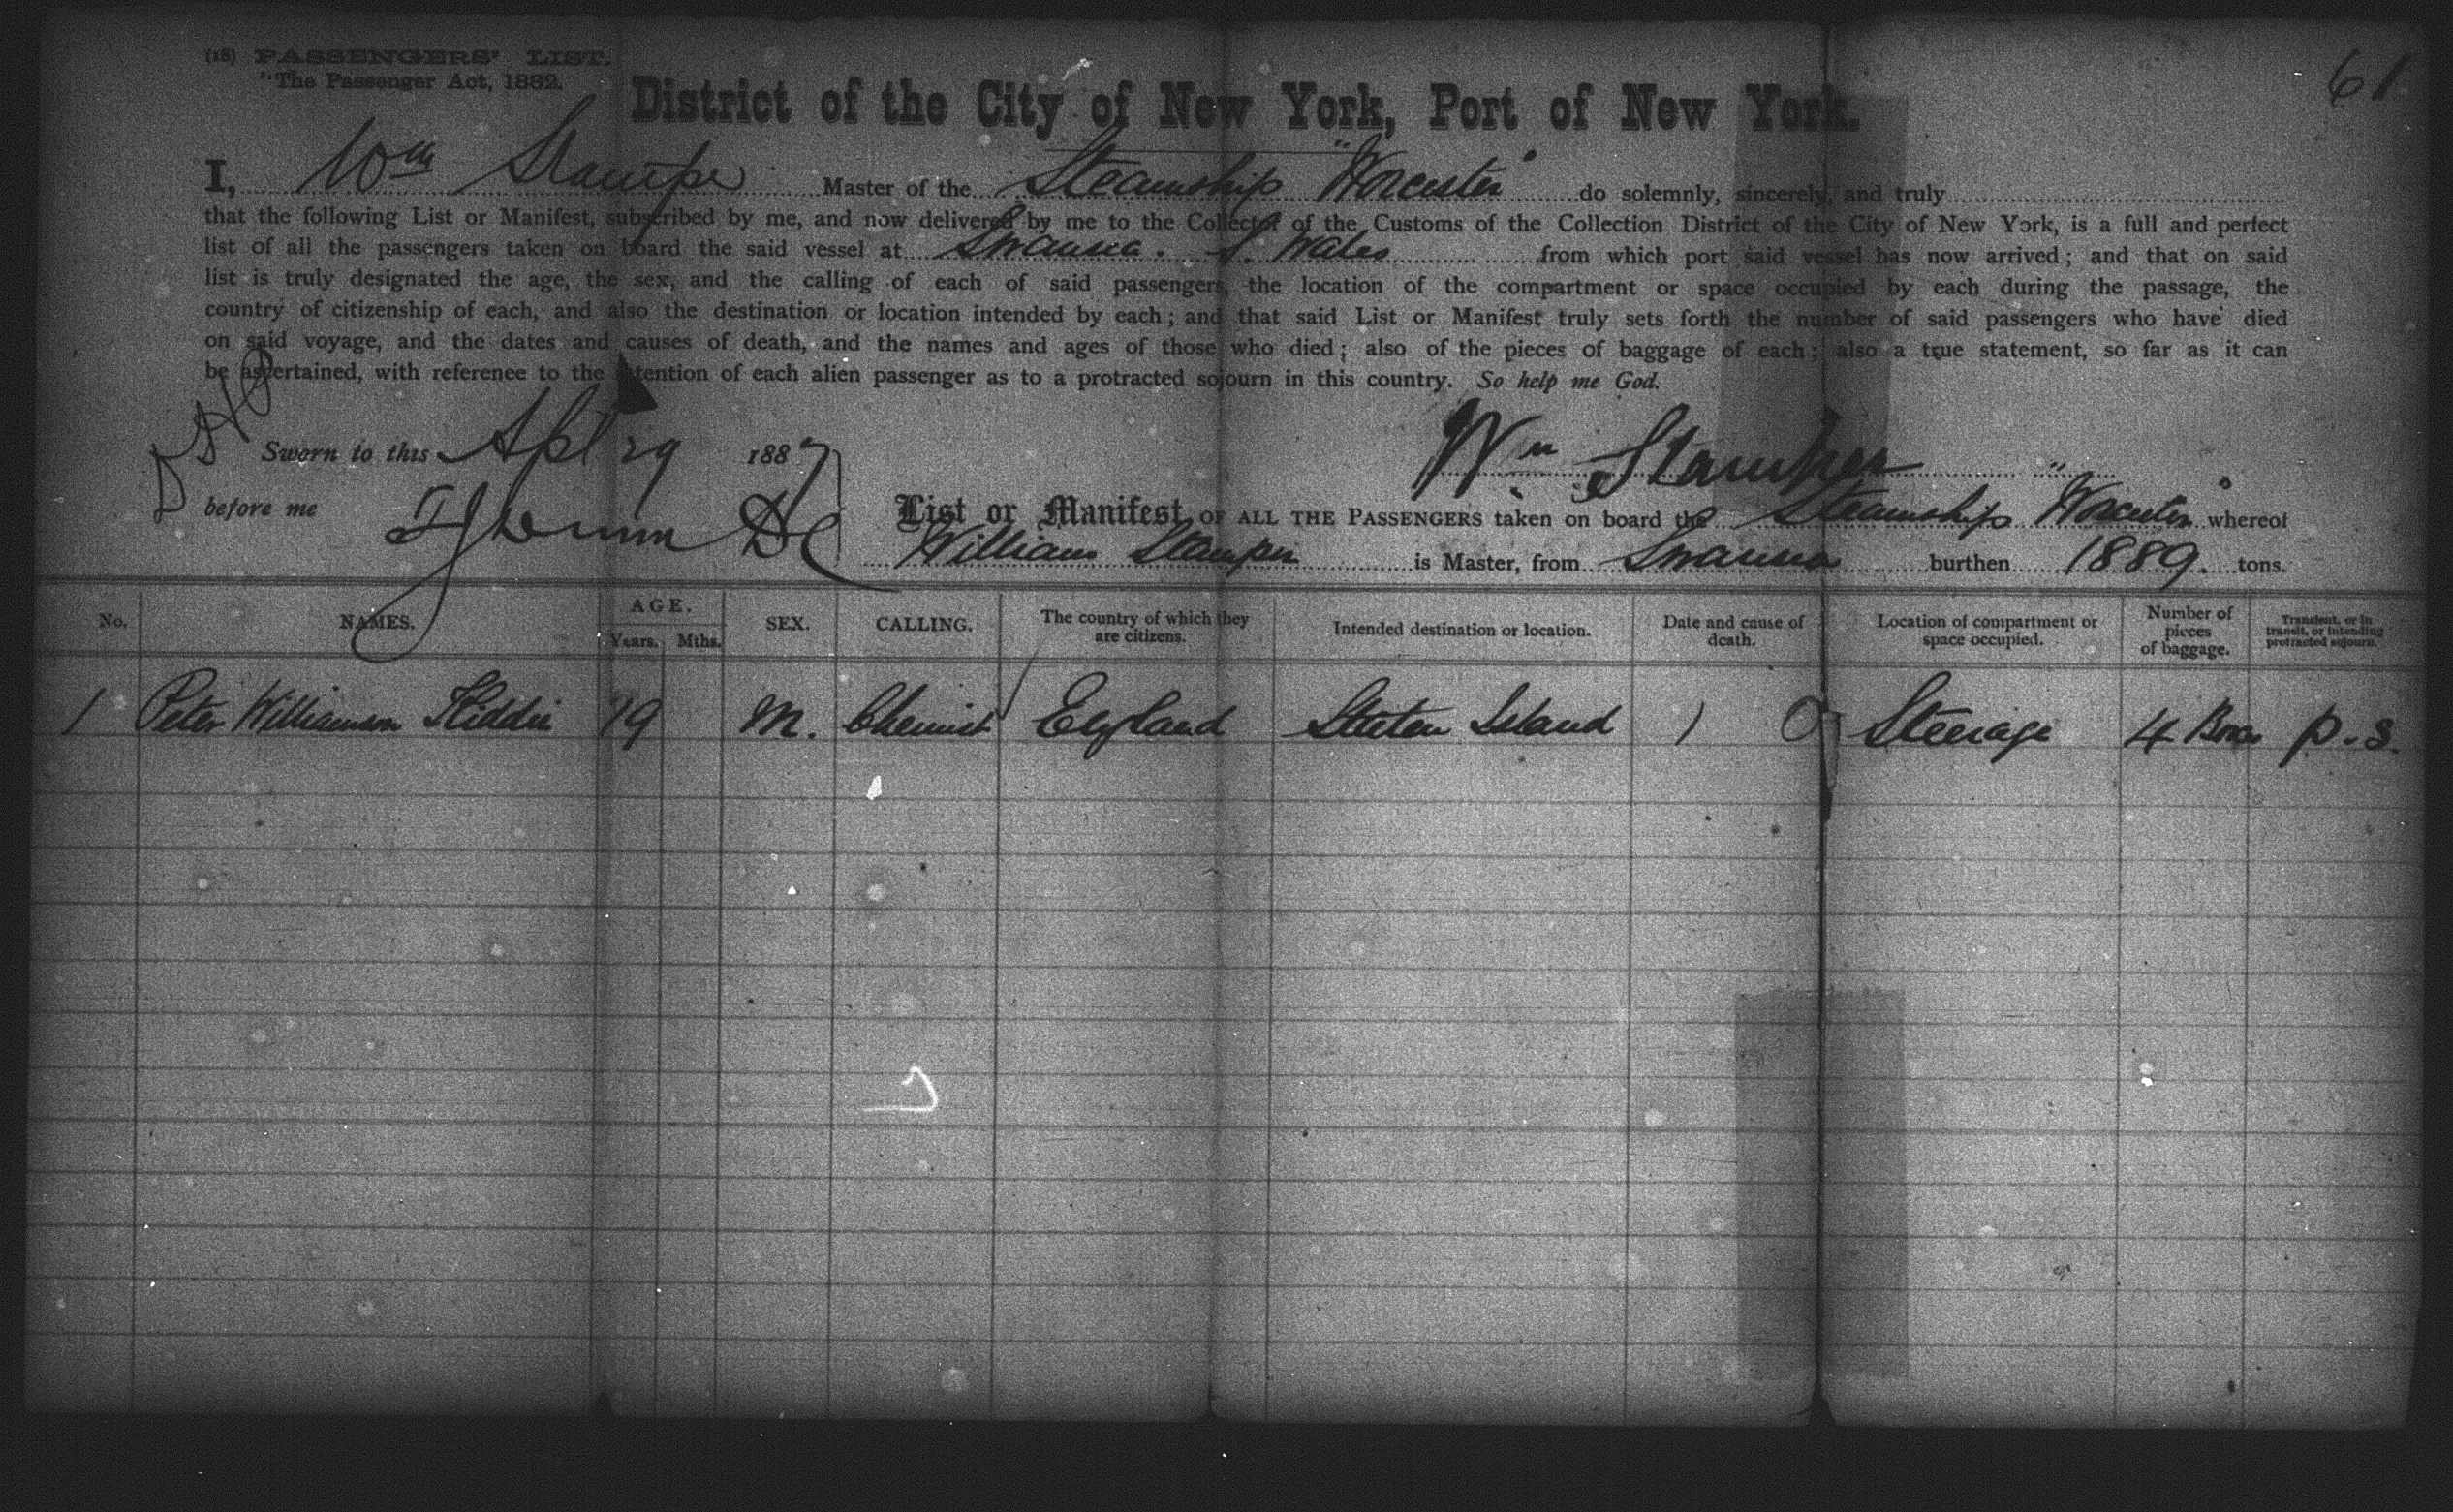 61
(18) PASSENGERS' LIST.
"The Passenger Act, 1882.
District of the City of New York, Port of New York.
I, Wm Stamper Master of the Steamship "Worcester" do solemnly, sincerely, and truly
that the following List or Manifest, subscribed by me, and now delivered by me to the Collector of the Customs of the Collection District of the City of New York, is a full and perfect
list of all the passengers taken on board the said vessel at Swansea. S. Wales from which port said vessel has now arrived; and that on said
list is truly designated the age, the sex, and the calling of each of said passengers, the location of the compartment or space occupied by each during the passage, the
country of citizenship of each, and also the destination or location intended by each; and that said List or Manifest truly sets forth the number of said passengers who have died
on said voyage, and the dates and causes of death, and the names and ages of those who died; also of the pieces of baggage of each; also a true statement, so far as it can
be ascertained, with reference to the intention of each alien passenger as to a protracted sojourn in this country. So help me God.
Sworn to this Apl 29 1887
Wm Stamper
before me
List or Manifest OF ALL THE PASSENGERS taken on board the Steamship "Worcester" whereof
William Stamper is Master, from Swansea burthen 1889. tons.
No. NAMES. AGE. Years. Mths. SEX. CALLING. The country of which they are citizens. Intended destination or location. Date and cause of death. Location of compartment or space occupied. Number of pieces of baggage. Transient, or in transit, or intending protracted sojourn.
1 Peter Williamson 19 M. Chemist England Staten Island 1 0 Steerage 4 Boxes p.s.